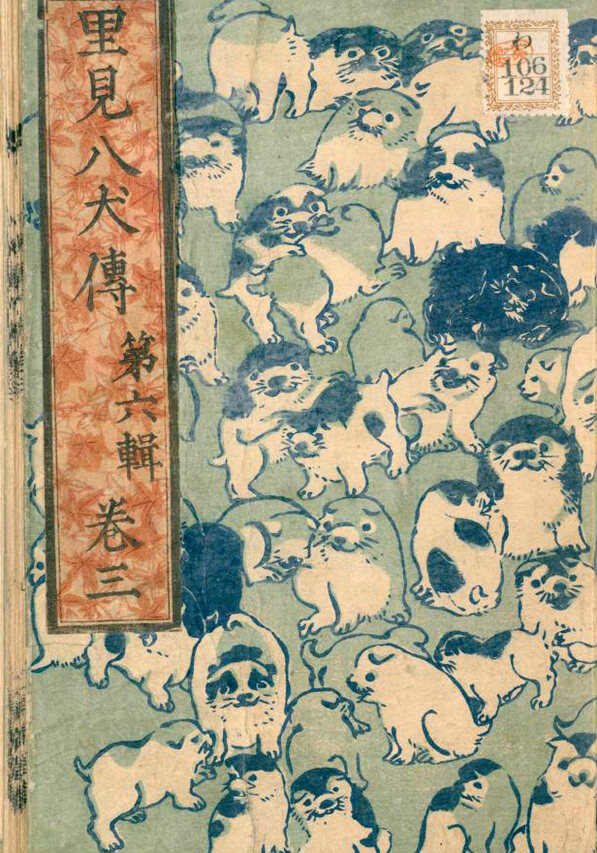 里見八犬傳 第六輯 巻三
わ
106
124